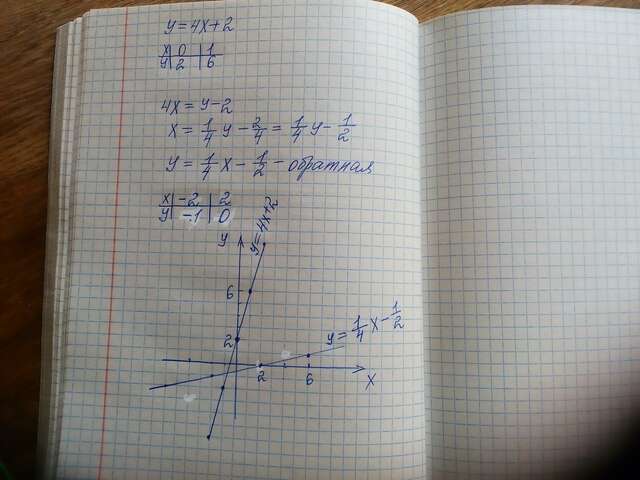 y=4x+2
x 0 1
y 2 6
4x=y-2
x=1/4 y-2/4=1/4 y-1/2
y=1/4 x-1/2 - обратная
x -2 2
y -1 0
y
y=4x+2
6
2
y=1/4 x-1/2
2 6 x